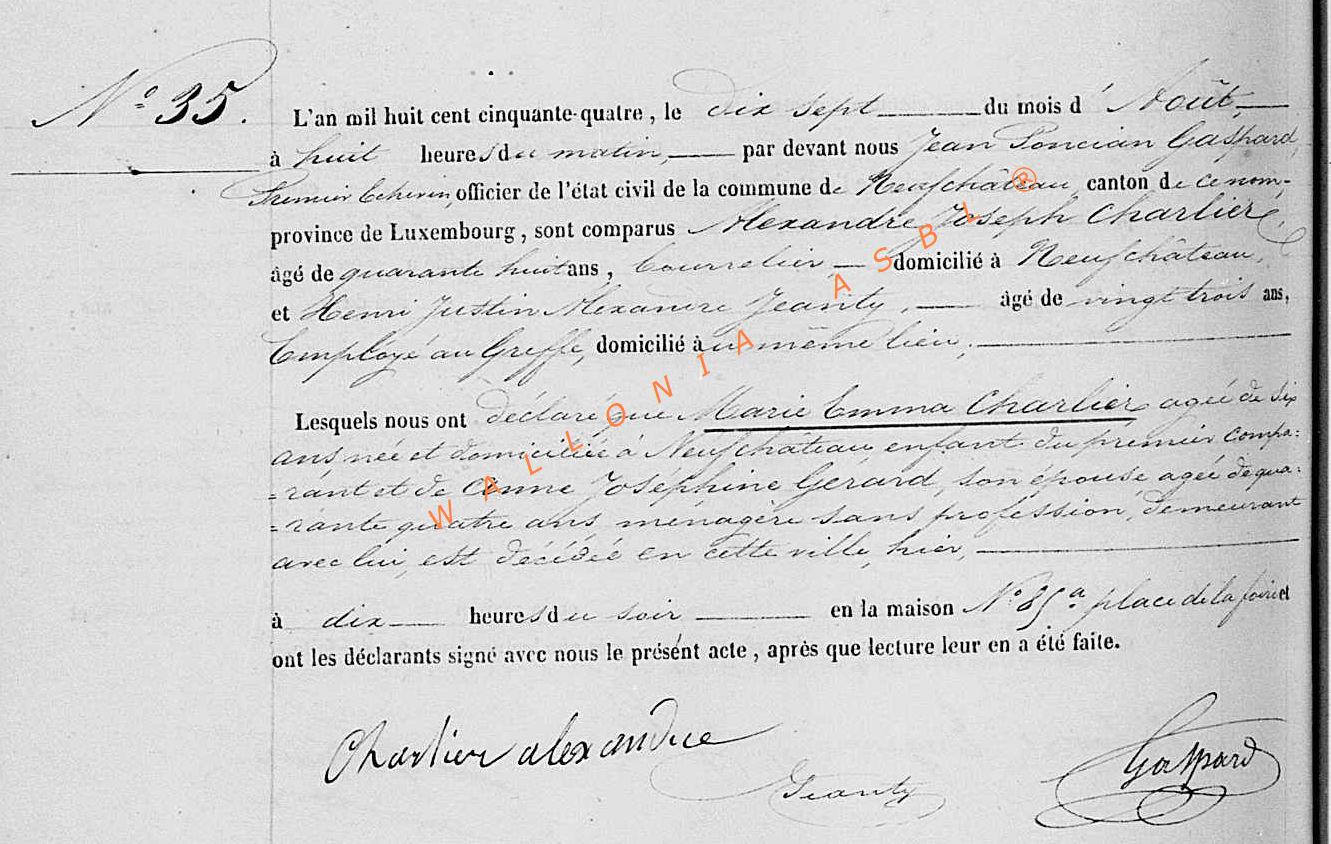 N° 35.
L'an mil huit cent cinquante-quatre, le dix sept du mois d'Août,
à huit heures du matin, par devant nous Jean Poncian Gaspard,
Premier Echevin, officier de l'état civil de la commune de Neufchâteau, canton de ce nom-
province de Luxembourg, sont comparus Alexandre Joseph Charlier,
âgé de quarante huit ans, bourrelier domicilié à Neufchâteau,
et Henri Justin Alexandre Jeanty, âgé de vingt trois ans,
Employé au Greffe, domicilié au même lieu,
Lesquels nous ont déclaré que Marie Emma Charlier agée de six
ans née et domiciliée à Neufchâteau enfant du premier compa:
=rant et de Anne Joséphine Gérard, son épouse agée de qua:
=rante quatre ans ménagère sans profession, demeurant
avec lui, est décédée en cette ville, hier,
à dix heures du soir en la maison N° 85a place de la foire et
ont les déclarants signé avec nous le présent acte, après que lecture leur en a été faite.
Charlier alexandre
Jeanty
Gaspard
WALLONIA ASBL ®